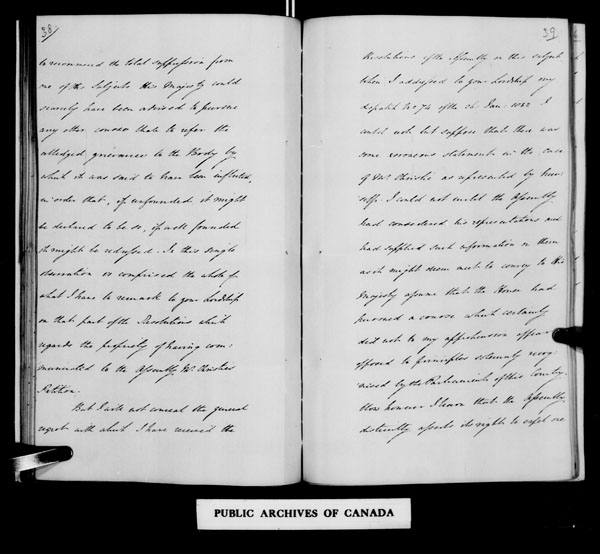 38
to recommend the total suppression from
one of his Subjects His Majesty could
scarcely have been advised to pursue
any other course than to refer the
alledged grievance to the Body by
which it was said to have been inflicted,
in order that, if unfounded it might
be declared to be so, if well founded
it might be redressed. In this single
observation is comprised the whole of
what I have to remark to your Lordship
on that part of the Resolutions which
regards the propriety of having com:
municated to the Assembly Mr Christie's
Petition.
But I will not conceal the general
regret with which I have received the
39
Resolutions of the Assembly on this subject
When I addressed to your Lordship my
despatch No 74 of the Jan: 1832 I
could not but suppose that there was
some erroneous statement in the case
of Mr Christie as represented by him:
self. I could not until the Assembly
had considered his representations and
had supplied such information on them
as it might deem meet to convey to His
Majesty assume that the House had
pursued a course which certainly
did not to my apprehension appear
opposed to principles solemnly recog:
nised by the Parliament of this Country.
Now however I learn that the Assembly
distinctly asserts its right to expel one
PUBLIC ARCHIVES OF CANADA